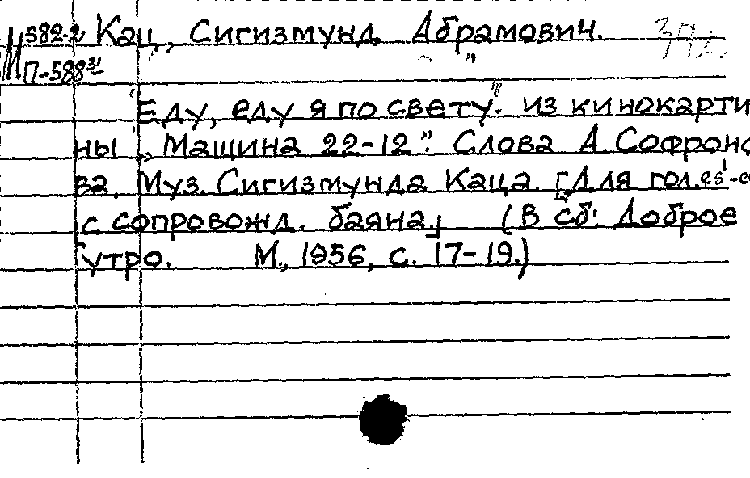 М 582-2 Кац, Сигизмунд Абрамович.
П-588
"Еду, еду я по свету". из кинокарти
ны „Машина 22-12". Слова А Софроно
ва. Муз. Сигизмунда Каца. [Для гол. es'-
с сопровожд. баяна.] (В сб: Доброе
утро. М., 1956, с. 17-19.)